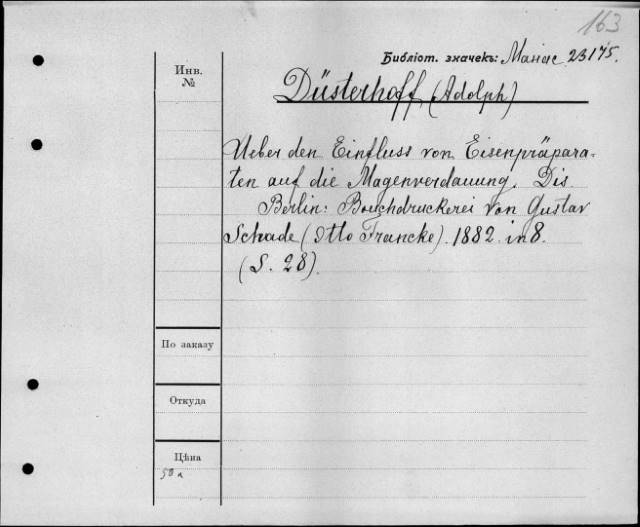 163
Библіот. значекъ: Манас 23175.
Инв.
№
Düsterhoff, (Adolph)
Ueber den Einfluss von Eisenpräpara-
ten auf die Magenverdauung. Dis
Berlin: Bouchdruckerei von Gustav
Schade (Otto Francke). 1882. in 8.
(S. 28).
По заказу
Откуда
Цѣна